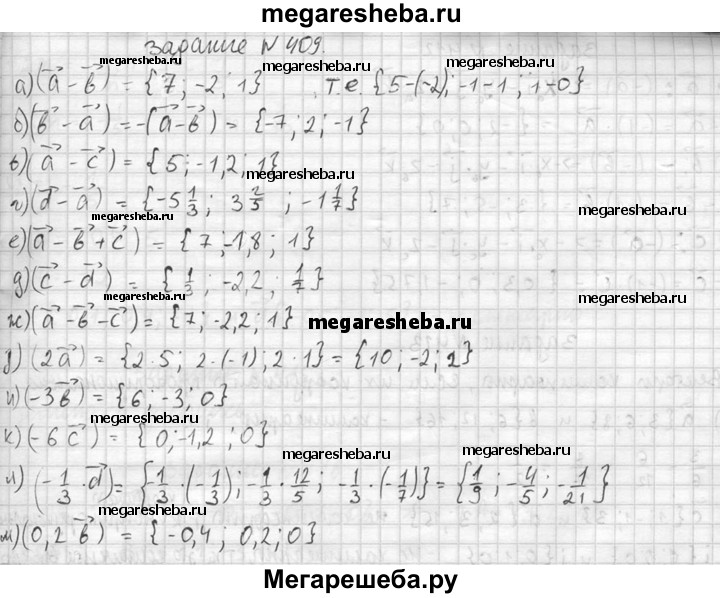 megaresheba.ru
задание N 409.
megaresheba.ru
а) (a⃗ - b⃗) = {7; -2; 1} , т.е {5-(-2); -1-1; 1-0}
б) (b⃗ - a⃗) = -(a⃗ - b⃗) = {-7; 2; -1}
megaresheba.ru
в) (a⃗ - c⃗) = {5; -1,2; 1}
megaresheba.ru
г) (d⃗ - a⃗) = {-5 1/3; 3 2/5; -1 1/7}
megaresheba.ru
megaresheba.ru
е) (a⃗ - b⃗ + c⃗) = {7; -1,8; 1}
д) (c⃗ - d⃗) = {1/3; -2,2; 1/7}
megaresheba.ru
megaresheba.ru
ж) (a⃗ - b⃗ - c⃗) = {7; -2,2; 1}
megaresheba.ru
з) (2a⃗) = {2·5; 2·(-1); 2·1} = {10; -2; 2}
и) (-3b⃗) = {6; -3; 0}
megaresheba.ru
к) (-6c⃗) = {0; -1,2; 0}
megaresheba.ru
megaresheba.ru
л) (-1/3·d⃗) = {-1/3·(-1/3); -1/3·12/5; -1/3·(-1/7)} = {1/9; -4/5; -1/21}
megaresheba.ru
м) (0,2b⃗) = {-0,4; 0,2; 0}
megaresheba.ru
megaresheba.ru
Мегарешеба.ру